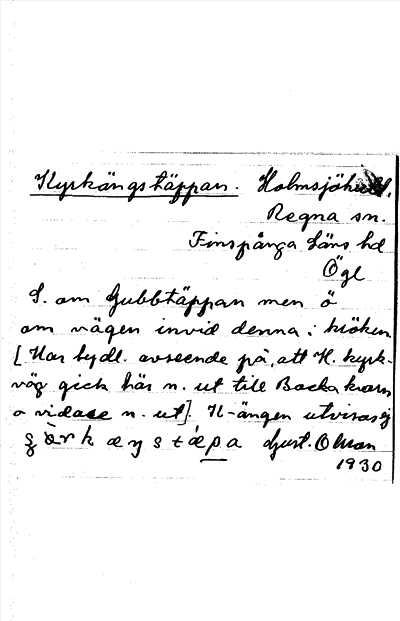 Kyrkängstäppan. Holmsjöhult,
Regna sn.
Finspånga läns hd
Ögl
S. om Gubbtäppan men ö
om vägen invid denna i kröken
[Har tydl. avseende på, att H. kyrk-
väg gick här n. ut till Backa kvarn
o vidare n. ut]. K-ängen utvisas ej
Gust. Olman
1930